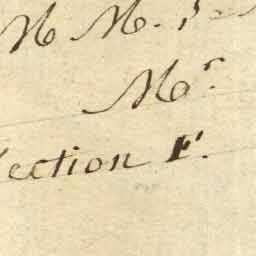 M M.
Mr.
ection F.